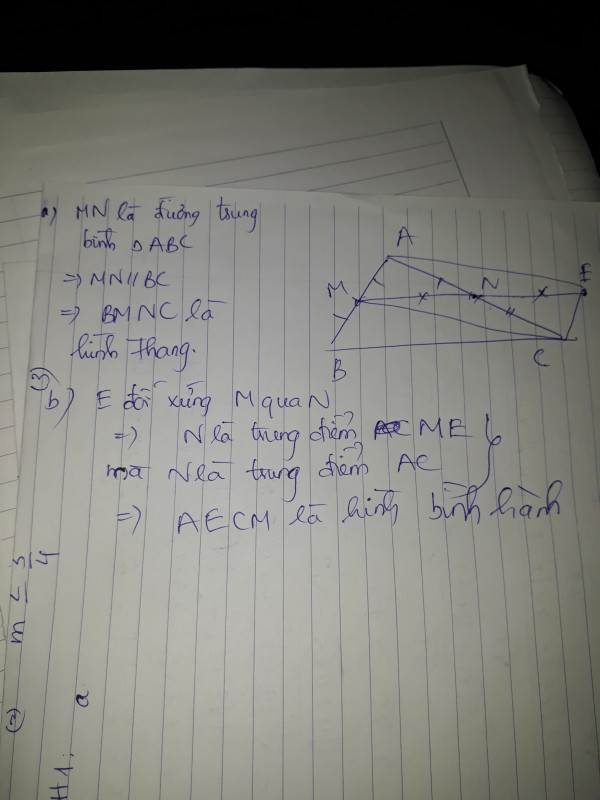 a) MN là đường trung
bình Δ ABC
=> MN // BC
=> BMNC là
hình thang.
A
M
N
E
B
C
(3)
b) E đối xứng M qua N
=> N là trung điểm ME
mà N là trung điểm AC
=> AECM là hình bình hành
(2) m ≤ 3/4
H1: a